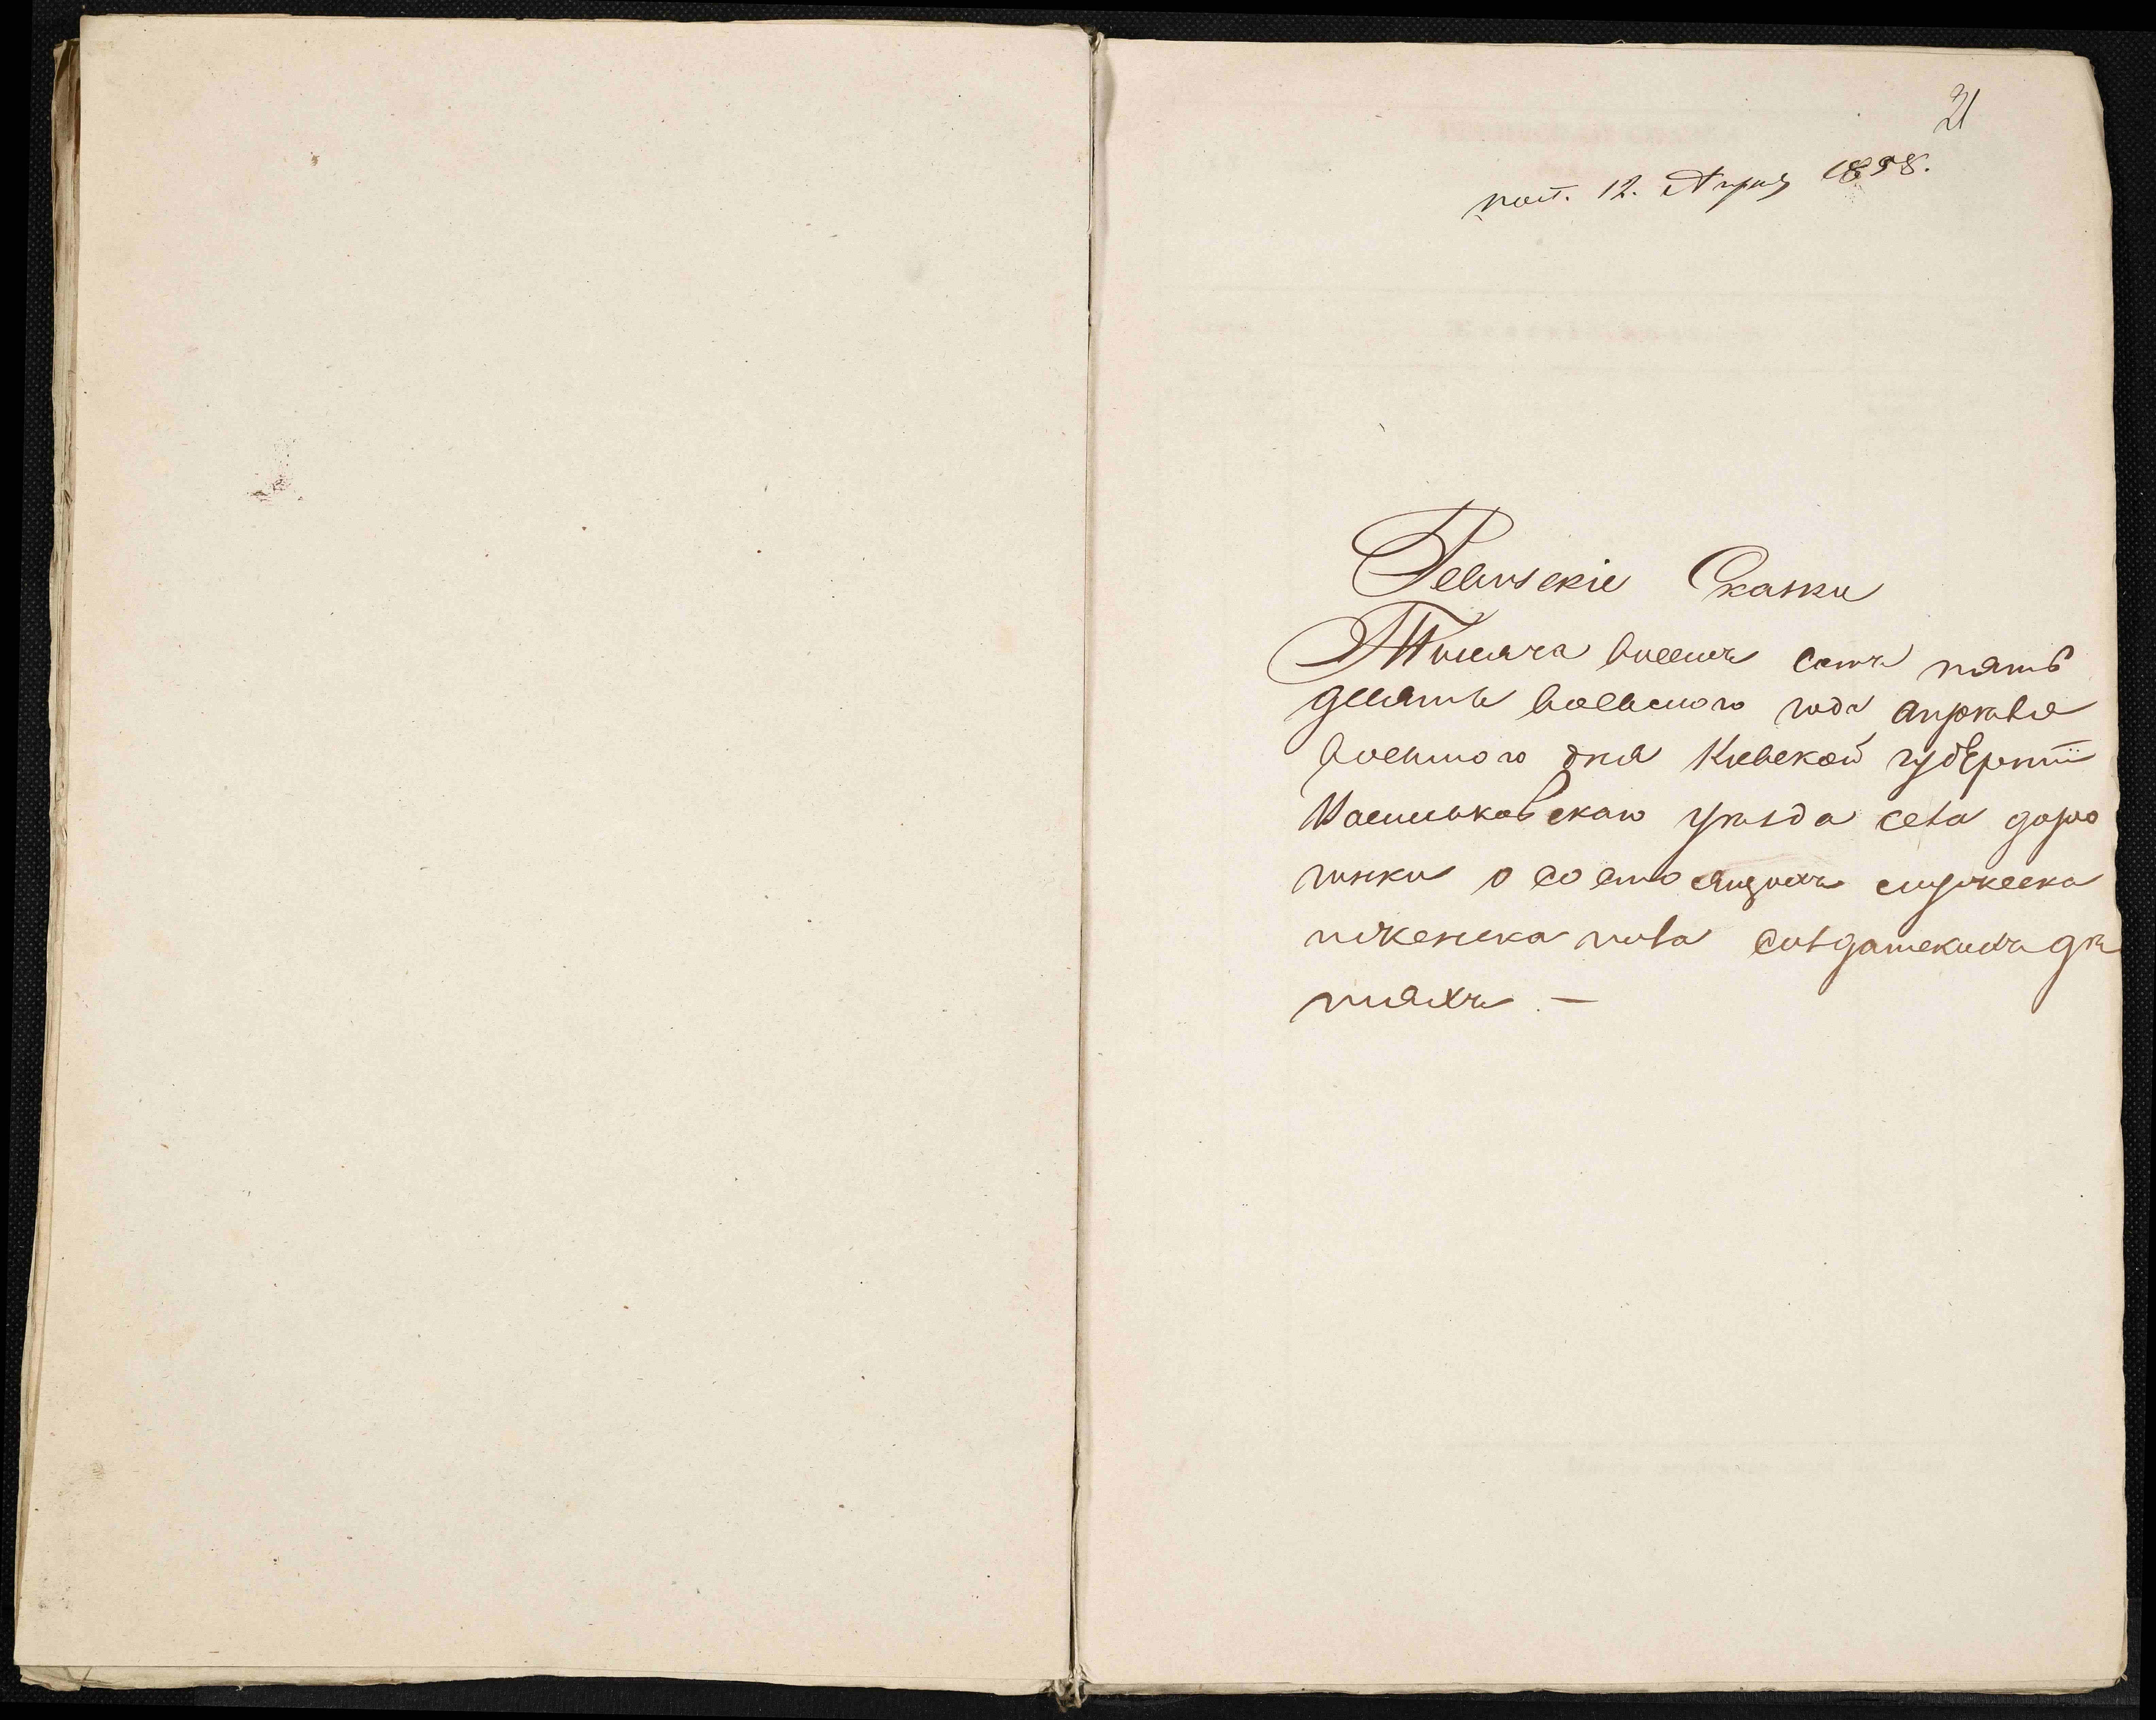 21
пол. 12. Апрѣля 1858.
Ревизскіе Сказки
Тысяча восемъ сотъ пять
десятъ восьмого года апрѣля
восьмого дня Киевской губерніи
Васильковскаго уѣзда села доро
гинки о состоящихъ мужеска
иженска пола солдатскихъ дѣ
тяхъ. —